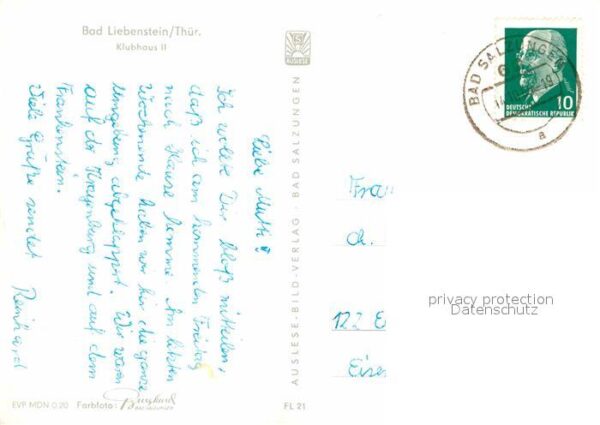 Bad Liebenstein/Thür.
Klubhaus II
Liebe Mutti!
Ich wollte Dir bloß mitteilen,
daß ich am kommenden Freitag
nach Hause komme. Am letzten
Wochenende haben wir hir die ganze
Umgebung abgeklappert. Wir waren
auf der Krayenburg und auf dem
Frankenstein.
Viele Grüße sendet
Reinhard
EVP MDN 0.20 Farbfoto:
AUSLESE-BILD-VERLAG · BAD SALZUNGEN
AUSLESE
FL 21
BAD SALZUNGEN
a
DEUTSCHE
DEMOKRATISCHE REPUBLIK
10
Fra
d.
122 E
Eise
privacy protection
Datenschutz